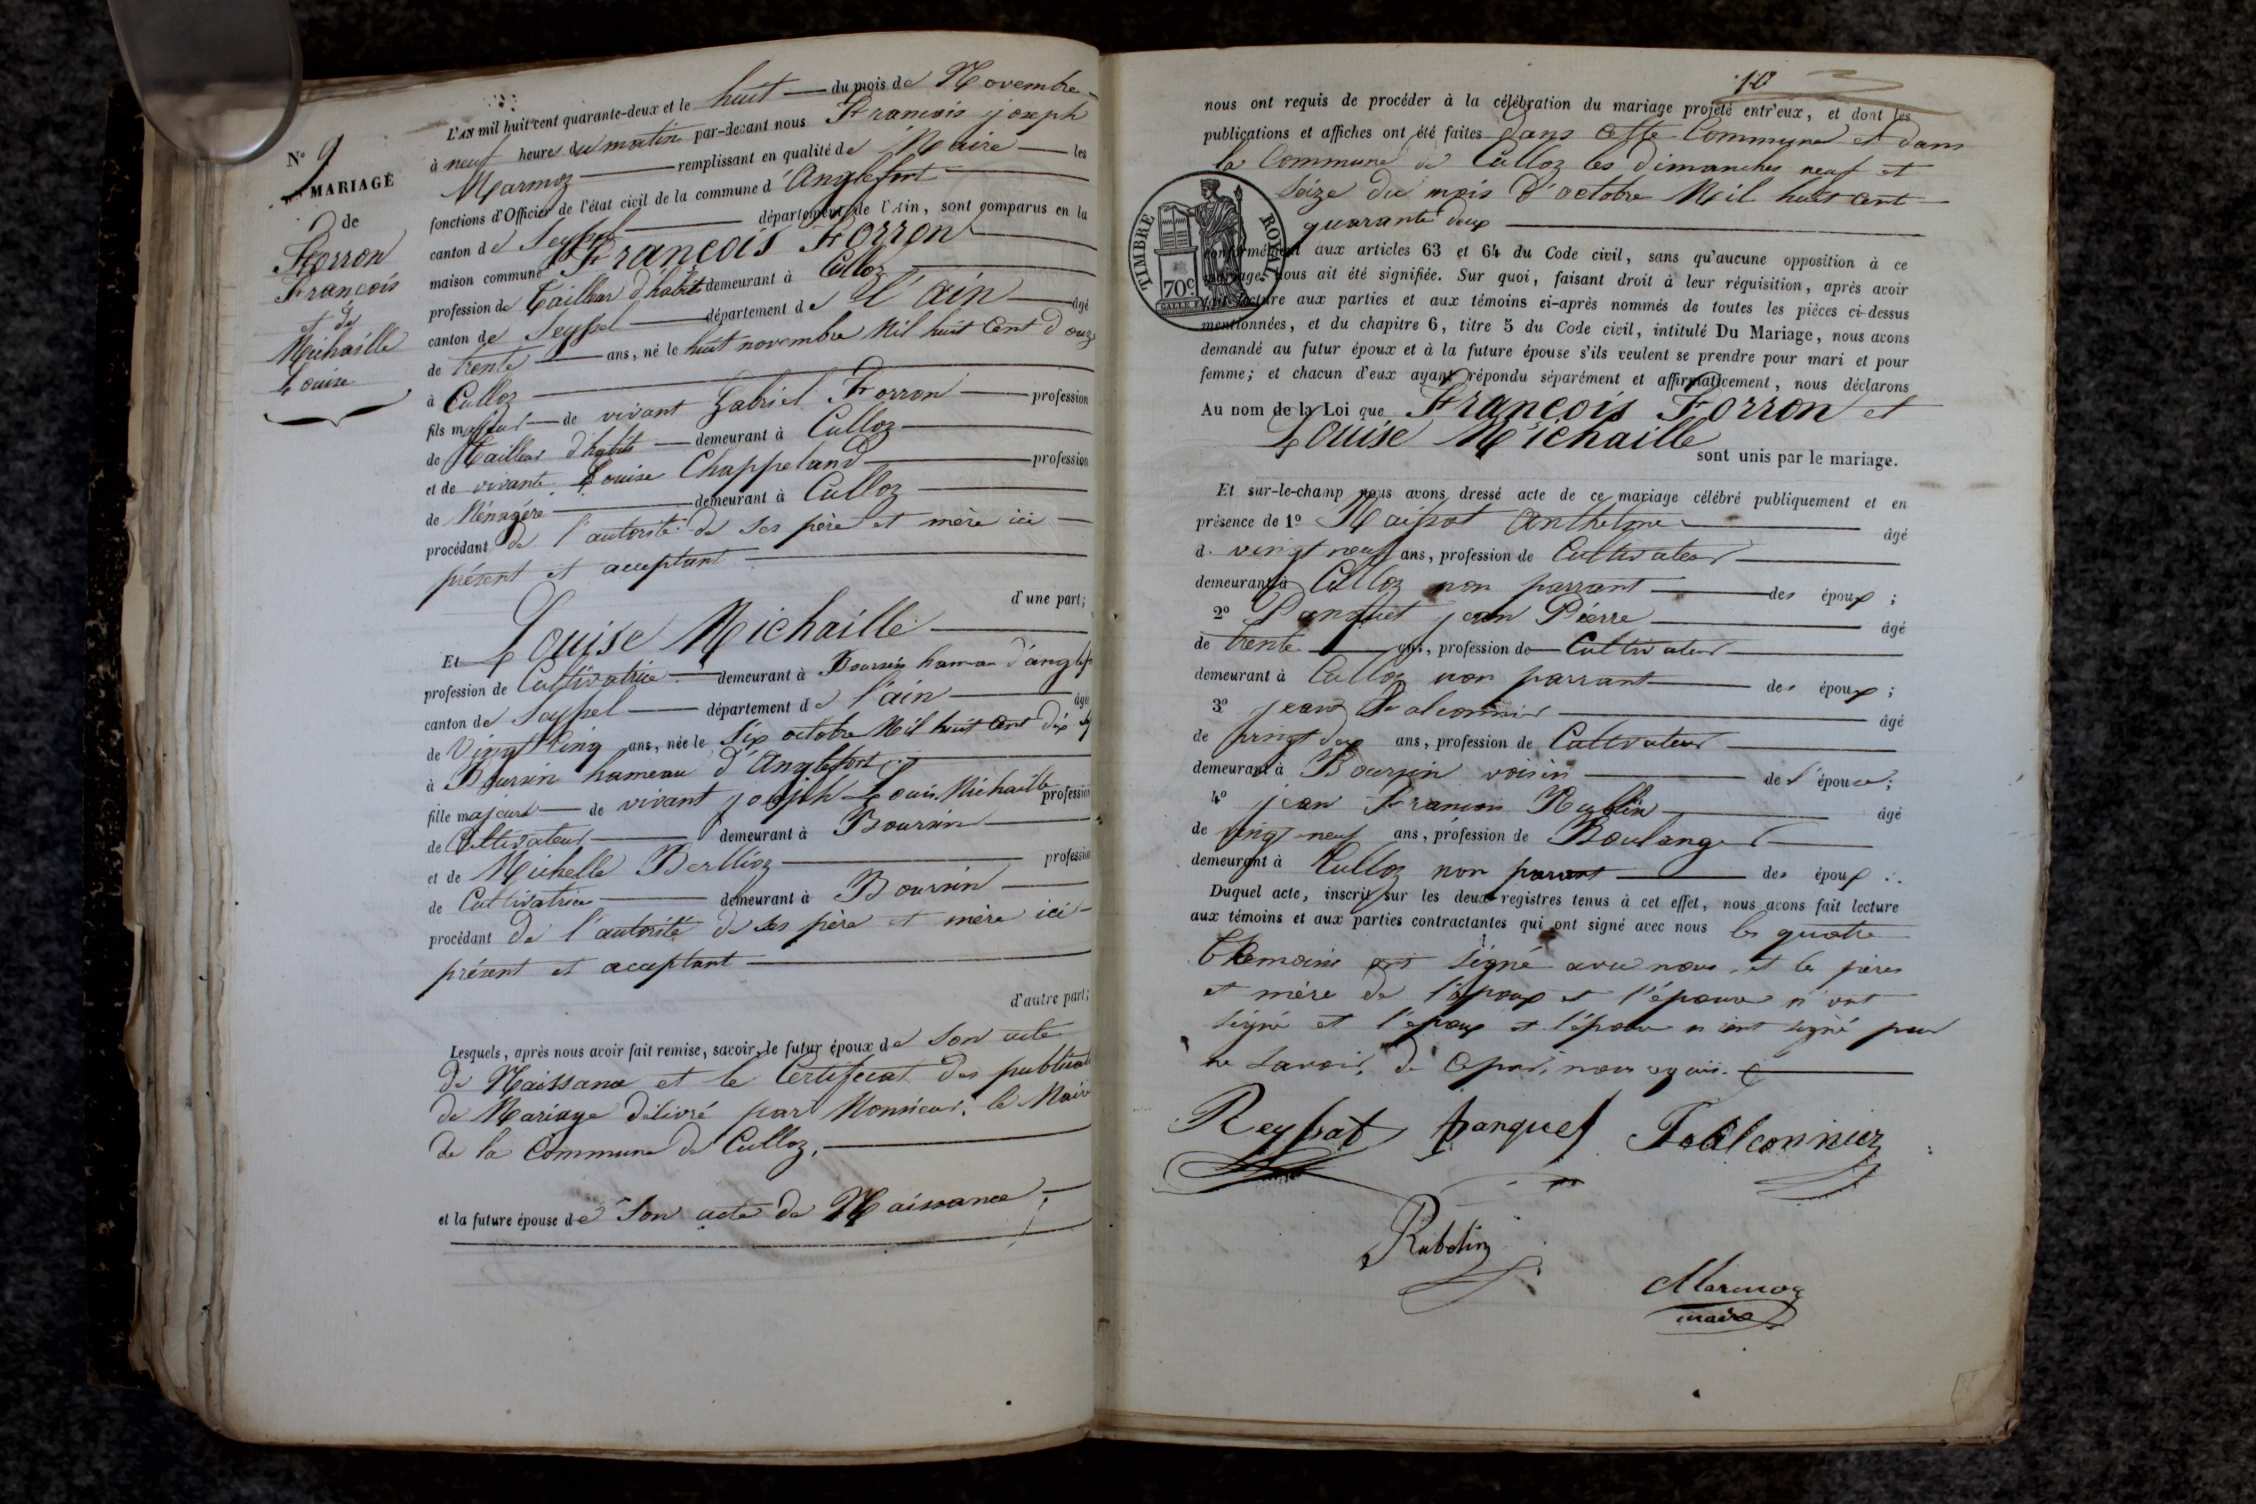 N° 9
MARIAGE
de
Forron
François
et de
Michaille
Louise
L'AN mil huit cent quarante-deux et le huit du mois de Novembre
à neuf heure du matin par-devant nous François joseph
Marmoz remplissant en qualité de Maire les
fonctions d'Officier de l'état civil de la commune d'Anglefort
canton de Seyssel département de l'Ain, sont comparus en la
maison commune François Forron
profession de Tailleur d'habits demeurant à Culloz
canton de Seyssel département de l'ain âgé
de trente ans, né le huit novembre Mil huit Cent douze
à Culloz
fils majeur de vivant Gabriel Forron profession
de Tailleur d'habits demeurant à Culloz
et de vivante Louise Chappeland profession
de Ménagère demeurant à Culloz
procédant de l'autorité de ses père et mère ici
présent et acceptant
d'une part;
Et Louise Michaille
profession de Cultivatrice demeurant à Boursin hameau d'anglef
canton de Seyssel département de l'ain âgé
de Vingt Cinq ans, née le Six octobre Mil huit Cent dix sept
à Boursin hameau d'Anglefort
fille majeure de vivant joseph Louis Michaille profession
de Cultivateur demeurant à Boursin
et de Michelle Berllioz profession
de Cultivatrice demeurant à Boursin
procédant de l'autorité de ses père et mère ici
présent et acceptant
d'autre part;
Lesquels, après nous avoir fait remise, savoir, le futur époux de Son acte
de Naissance et le Certificat des publicat
de Mariage délivré par Monsieur le Maire
de la Commune de Culloz,
et la future épouse de Son acte de Naissance;
10
nous ont requis de procéder à la célébration du mariage projeté entr'eux, et dont les
publications et affiches ont été faites dans Cette Commune et dans
la Commune de Culloz les dimanches neuf et
Seize du mois d'octobre Mil huit Cent
quarante deux
TIMBRE ROYAL
70c
conformément aux articles 63 et 64 du Code civil, sans qu'aucune opposition à ce
mariage nous ait été signifiée. Sur quoi, faisant droit à leur réquisition, après avoir
fait lecture aux parties et aux témoins ci-après nommés de toutes les pièces ci-dessus
mentionnées, et du chapitre 6, titre 5 du Code civil, intitulé Du Mariage, nous avons
demandé au futur époux et à la future épouse s'ils veulent se prendre pour mari et pour
femme; et chacun d'eux ayant répondu séparément et affirmativement, nous déclarons
Au nom de la Loi que François Forron et
Louise Michaille
sont unis par le mariage.
Et sur-le-champ nous avons dressé acte de ce mariage célébré publiquement et en
présence de 1° Anthelme âgé
d. vingt neuf ans, profession de Cultivateur
demeurant à Culloz non parrant des époux;
2° Panquet jean Pierre âgé
de trente ans, profession de Cultivateur
demeurant à Culloz non parrant des époux;
3° jean Falconnier âgé
de vingt deux ans, profession de Cultivateur
demeurant à Boursin voisin de l'épouse;
4° jean François âgé
de vingt neuf ans, profession de Boulanger
demeurant à Culloz non parant des époux
Duquel acte, inscrit sur les deux registres tenus à cet effet, nous avons fait lecture
aux témoins et aux parties contractantes qui ont signé avec nous les quatre
témoins ont signé avec nous, et les pères
et mère de l'époux et l'épouse n'ont
signé et l'époux et l'épouse n'ont signé pour
ne savoir, de
Reypat panquet Falconnier
Rubolin
Marmoz
maire